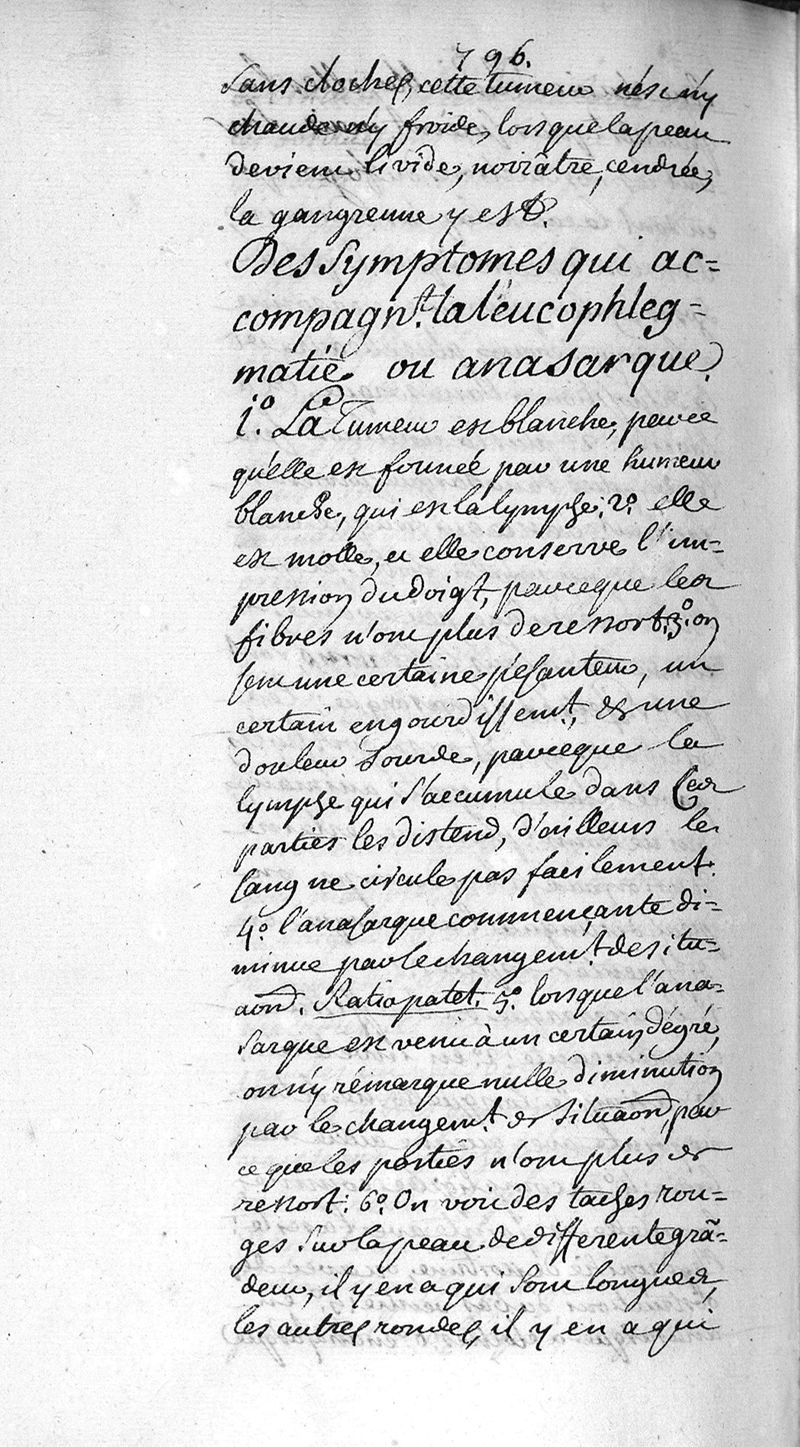 796.
sans cloches, cette tumeur n'est n'y
chaude n'y froide, lorsque la peau
devient livide, noirâtre, cendrée,
la gangrenne y est.
Des symptomes qui ac=
compagn.t la leucophleg=
matie ou anasarque.
1.º La Tumeur est blanche, parce
qu'elle est formée par une humeur
blanche, qui est la lymphe: 2.º elle
est molle, et elle conserve l'im=
pression du doigt, parceque les
fibres n'ont plus de ressort: 3.º on
sent une certaine pesanteur, un
certain engourdissemt., & une
douleur sourde, parceque la
lymphe qui s'accumule dans ces
parties les distend, d'ailleurs le
sang ne circule pas facilement.
4.º l'anasarque commençante di=
minue par le changem.t de situ=
aond. Ratio patet. 5.º lorsque l'ana=
sarque est venu à un certain dégré,
on n'y rémarque nulle diminution
par le changem.t de situaond, par
ce que les parties n'ont plus de
ressort: 6.º On voit des taches rou=
ges sur la peau de differente grã=
deur, il y en a qui sont longues,
les autres rondes, il y en a qui